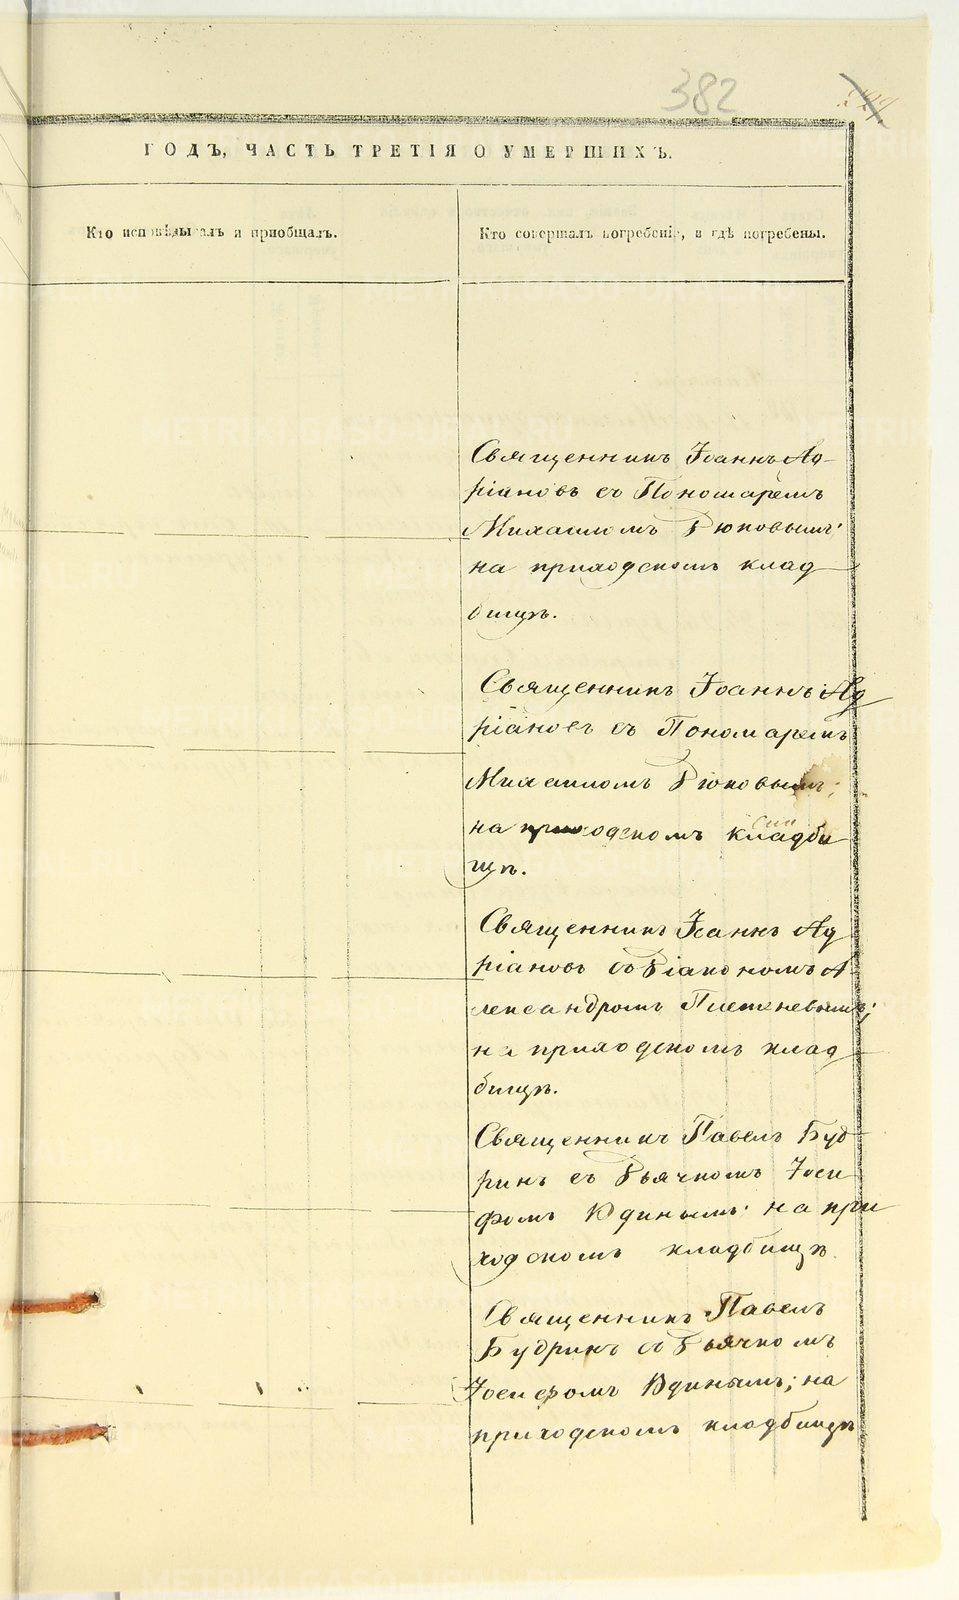 382
ГОДЪ, ЧАСТЬ ТРЕТІЯ О УМЕРШИХЪ.
Кто исповѣдывалъ и пріобщалъ.
Кто совершалъ погребеніе, и гдѣ погребены.
Священникъ Іоаннъ Ад-
ріановъ съ Пономаремъ
Михаиломъ
на приходскомъ клад
бищѣ.
Священникъ Іоаннъ Ад
ріановъ съ Пономаремъ
Михаиломъ
на приходскомъ кладби
щѣ.
Священникъ Іоаннъ Ад
ріановъ съ Діакономъ А
лександромъ Плетеневымъ;
на приходскомъ клад
бищѣ.
Священникъ Павелъ Буд
ринъ съ Дьячкомъ Іоси
фомъ Юдинымъ; на при
ходскомъ кладбищѣ
Священникъ Павелъ
Будринъ съ Дьячкомъ
Іосифомъ Юдинымъ; на
приходскомъ кладбищѣ
METRIKI.GASO-URAL.RU